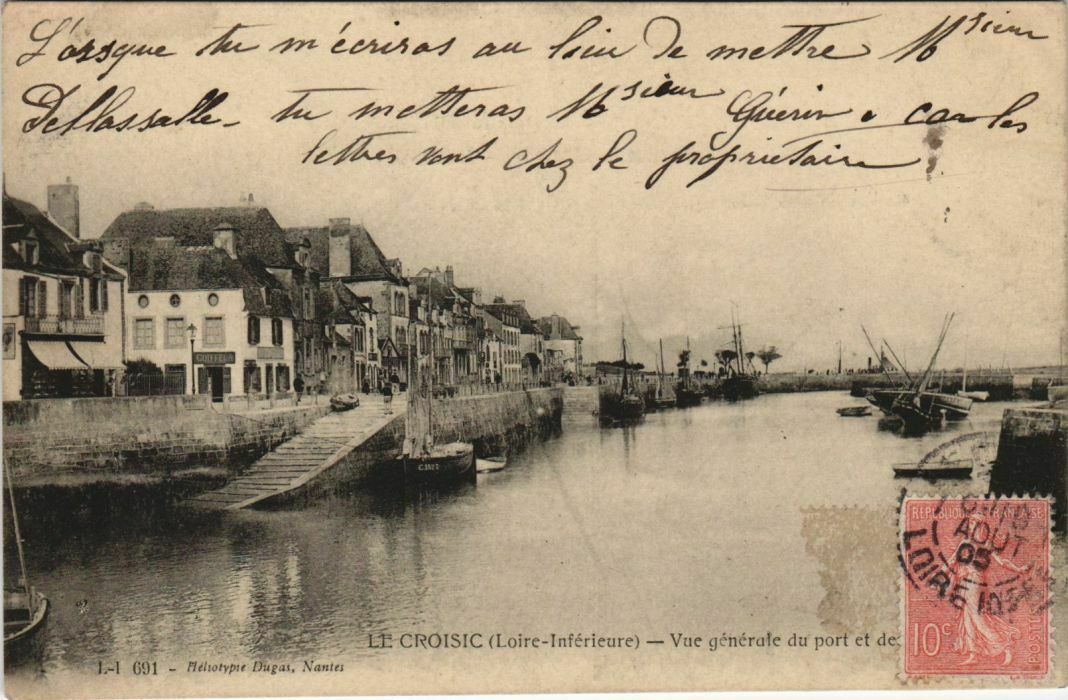 L'orsque tu m'écriras au lieu de mettre Msieur
Dellassalle - tu metteras Msieur Guérin, car les
lettres vont chez le propriétaire
COIFFEUR
LE CROISIC (Loire-Inférieure) — Vue générale du port et de
L-I 691 - Héliotypie Dugas, Nantes
REPUBLIQUE FRANÇAISE
AOUT
05
LOIRE INF
10c
POSTES